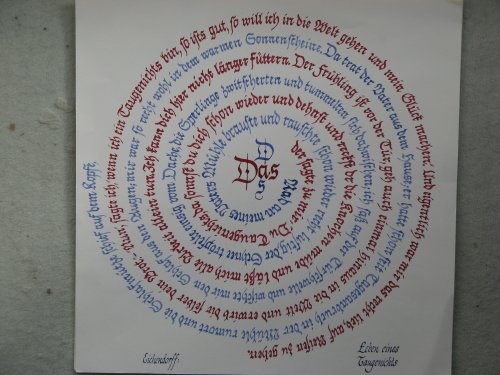 Das
Das
Rad an meines Vaters Mühle brauste und rauschte schon wieder recht lustig, der Schnee tröpfelte emsig vom Dache, die Sperlinge zwitscherten und tummelten sich dazwischen; ich saß auf der Türschwelle und wischte mir den Schlaf aus den Augen; mir war so recht wohl in dem warmen Sonnenscheine. Da trat der Vater aus dem Hause; er hatte schon seit Tagesanbruch in der Mühle rumort und die Schlafmütze schief auf dem Kopfe,
der sagte zu mir: Du Taugenichts! da sonnst du dich schon wieder und dehnst und reckst dir die Knochen müde und läßt mich alle Arbeit allein tun. Ich kann dich hier nicht länger füttern. Der Frühling ist vor der Tür, geh auch einmal hinaus in die Welt und erwirb dir selber dein Brot. - Nun, sagte ich, wenn ich ein Taugenichts bin, so ists gut, so will ich in die Welt gehen und mein Glück machen. Und eigentlich war mir das recht lieb, auf Reisen zu gehen.
Eichendorff:
Leben eines
Taugenichts